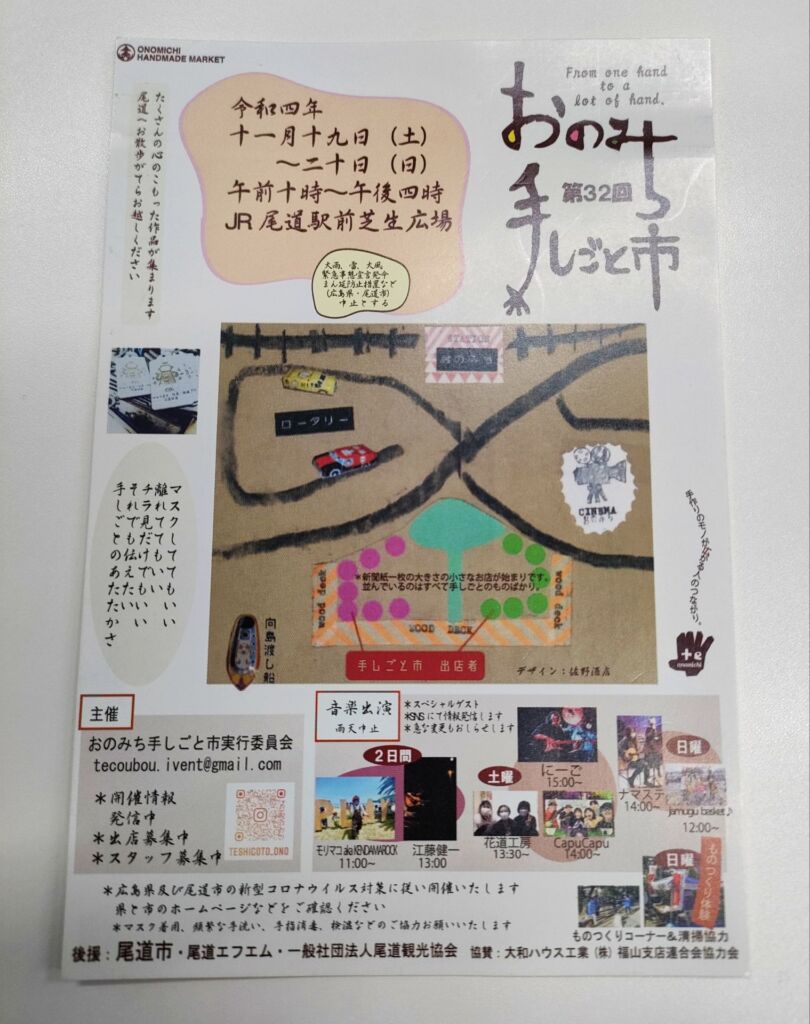 ONOMICHI
HANDMADE MARKET
たくさんの心のこもった作品が集まります
尾道へお散歩がてらお越しください
令和四年
十一月十九日（土）
～二十日（日）
午前十時～午後四時
JR 尾道駅前芝生広場
大雨、雷、大風
緊急事態宣言発令
まん延防止措置など
（広島県・尾道市）
中止とする
From one hand
to a
lot of hand.
おのみち
第32回
手しごと市
STATION
おのみち
ロータリー
CINEMA
おのみち
マスクしててもいい
離れててもいい
チラ見でもいい
それだけでも伝えたい
手しごとのあたたかさ
手作りのモノがつながる人のつながり。
te
onomichi
＊新聞紙一枚の大きさの小さなお店が始まります。
並んでいるのはすべて手しごとのものばかり。
wood deck
wood deck
WOOD DECK
手しごと市 出店者
向島渡し船
デザイン：佐野酒店
主催
おのみち手しごと市実行委員会
tecoubou.ivent@gmail.com
＊開催情報
発信中
＊出店募集中
＊スタッフ募集中
TESHICOTO_ONO
音楽出演
雨天中止
＊スペシャルゲスト
＊SNSにて情報発信します
＊急な変更もおしらせします
2日間
モリマコ aka KENDAMAROCK
11:00～
江藤健一
13:00
土曜
にーご
15:00～
花道工房
13:30～
CapuCapu
14:00～
日曜
ナマステ
14:00～
jamugu basket♪
12:00～
日曜
ものつくり体験
ものつくりコーナー&清掃協力
＊広島県及び尾道市の新型コロナウイルス対策に従い開催いたします
県と市のホームページなどをご確認ください
＊マスク着用、頻繁な手洗い、手指消毒、検温などのご協力お願いいたします
後援：尾道市・尾道エフエム・一般社団法人尾道観光協会 協賛：大和ハウス工業（株）福山支店連合会協力会